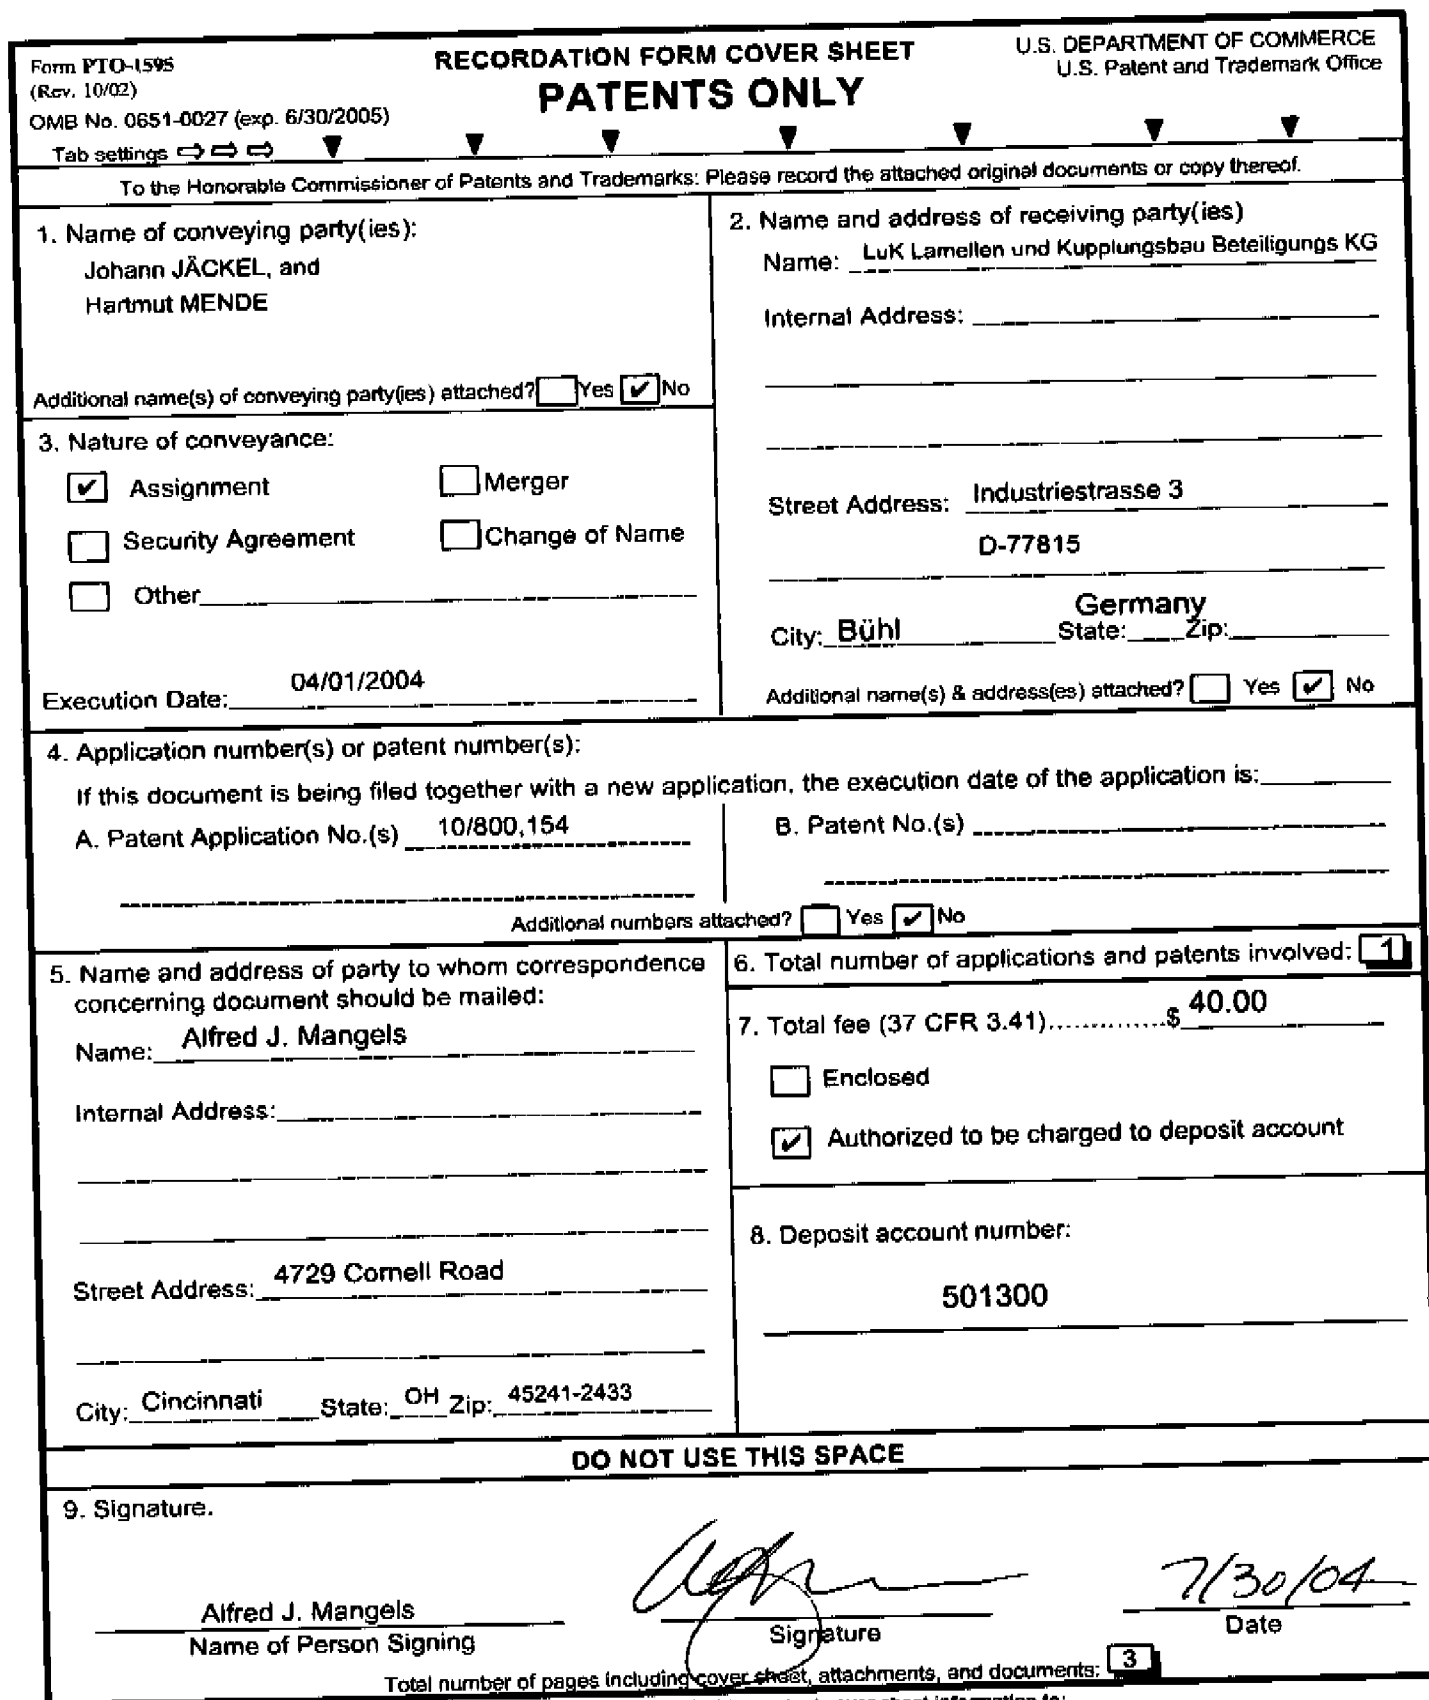 Form PTO-1595
(Rev. 10/02)
OMB No. 0651-0027 (exp. 6/30/2005)
Tab settings ⇨ ⇨ ⇨
RECORDATION FORM COVER SHEET
PATENTS ONLY
U.S. DEPARTMENT OF COMMERCE
U.S. Patent and Trademark Office
To the Honorable Commissioner of Patents and Trademarks: Please record the attached original documents or copy thereof.
1. Name of conveying party(ies):
Johann JÄCKEL, and
Hartmut MENDE
Additional name(s) of conveying party(ies) attached? Yes ✔ No
2. Name and address of receiving party(ies)
Name: LuK Lamellen und Kupplungsbau Beteiligungs KG
Internal Address:
Street Address: Industriestrasse 3
D-77815
Germany
City: Bühl State: Zip:
Additional name(s) & address(es) attached? Yes ✔ No
3. Nature of conveyance:
✔ Assignment Merger
Security Agreement Change of Name
Other
Execution Date: 04/01/2004
4. Application number(s) or patent number(s):
If this document is being filed together with a new application, the execution date of the application is:
A. Patent Application No.(s) 10/800,154
B. Patent No.(s)
Additional numbers attached? Yes ✔ No
5. Name and address of party to whom correspondence
concerning document should be mailed:
Name: Alfred J. Mangels
Internal Address:
Street Address: 4729 Cornell Road
City: Cincinnati State: OH Zip: 45241-2433
6. Total number of applications and patents involved: 1
7. Total fee (37 CFR 3.41)..............$ 40.00
Enclosed
✔ Authorized to be charged to deposit account
8. Deposit account number:
501300
DO NOT USE THIS SPACE
9. Signature.
Alfred J. Mangels
Name of Person Signing
Signature
7/30/04
Date
Total number of pages including cover sheet, attachments, and documents: 3